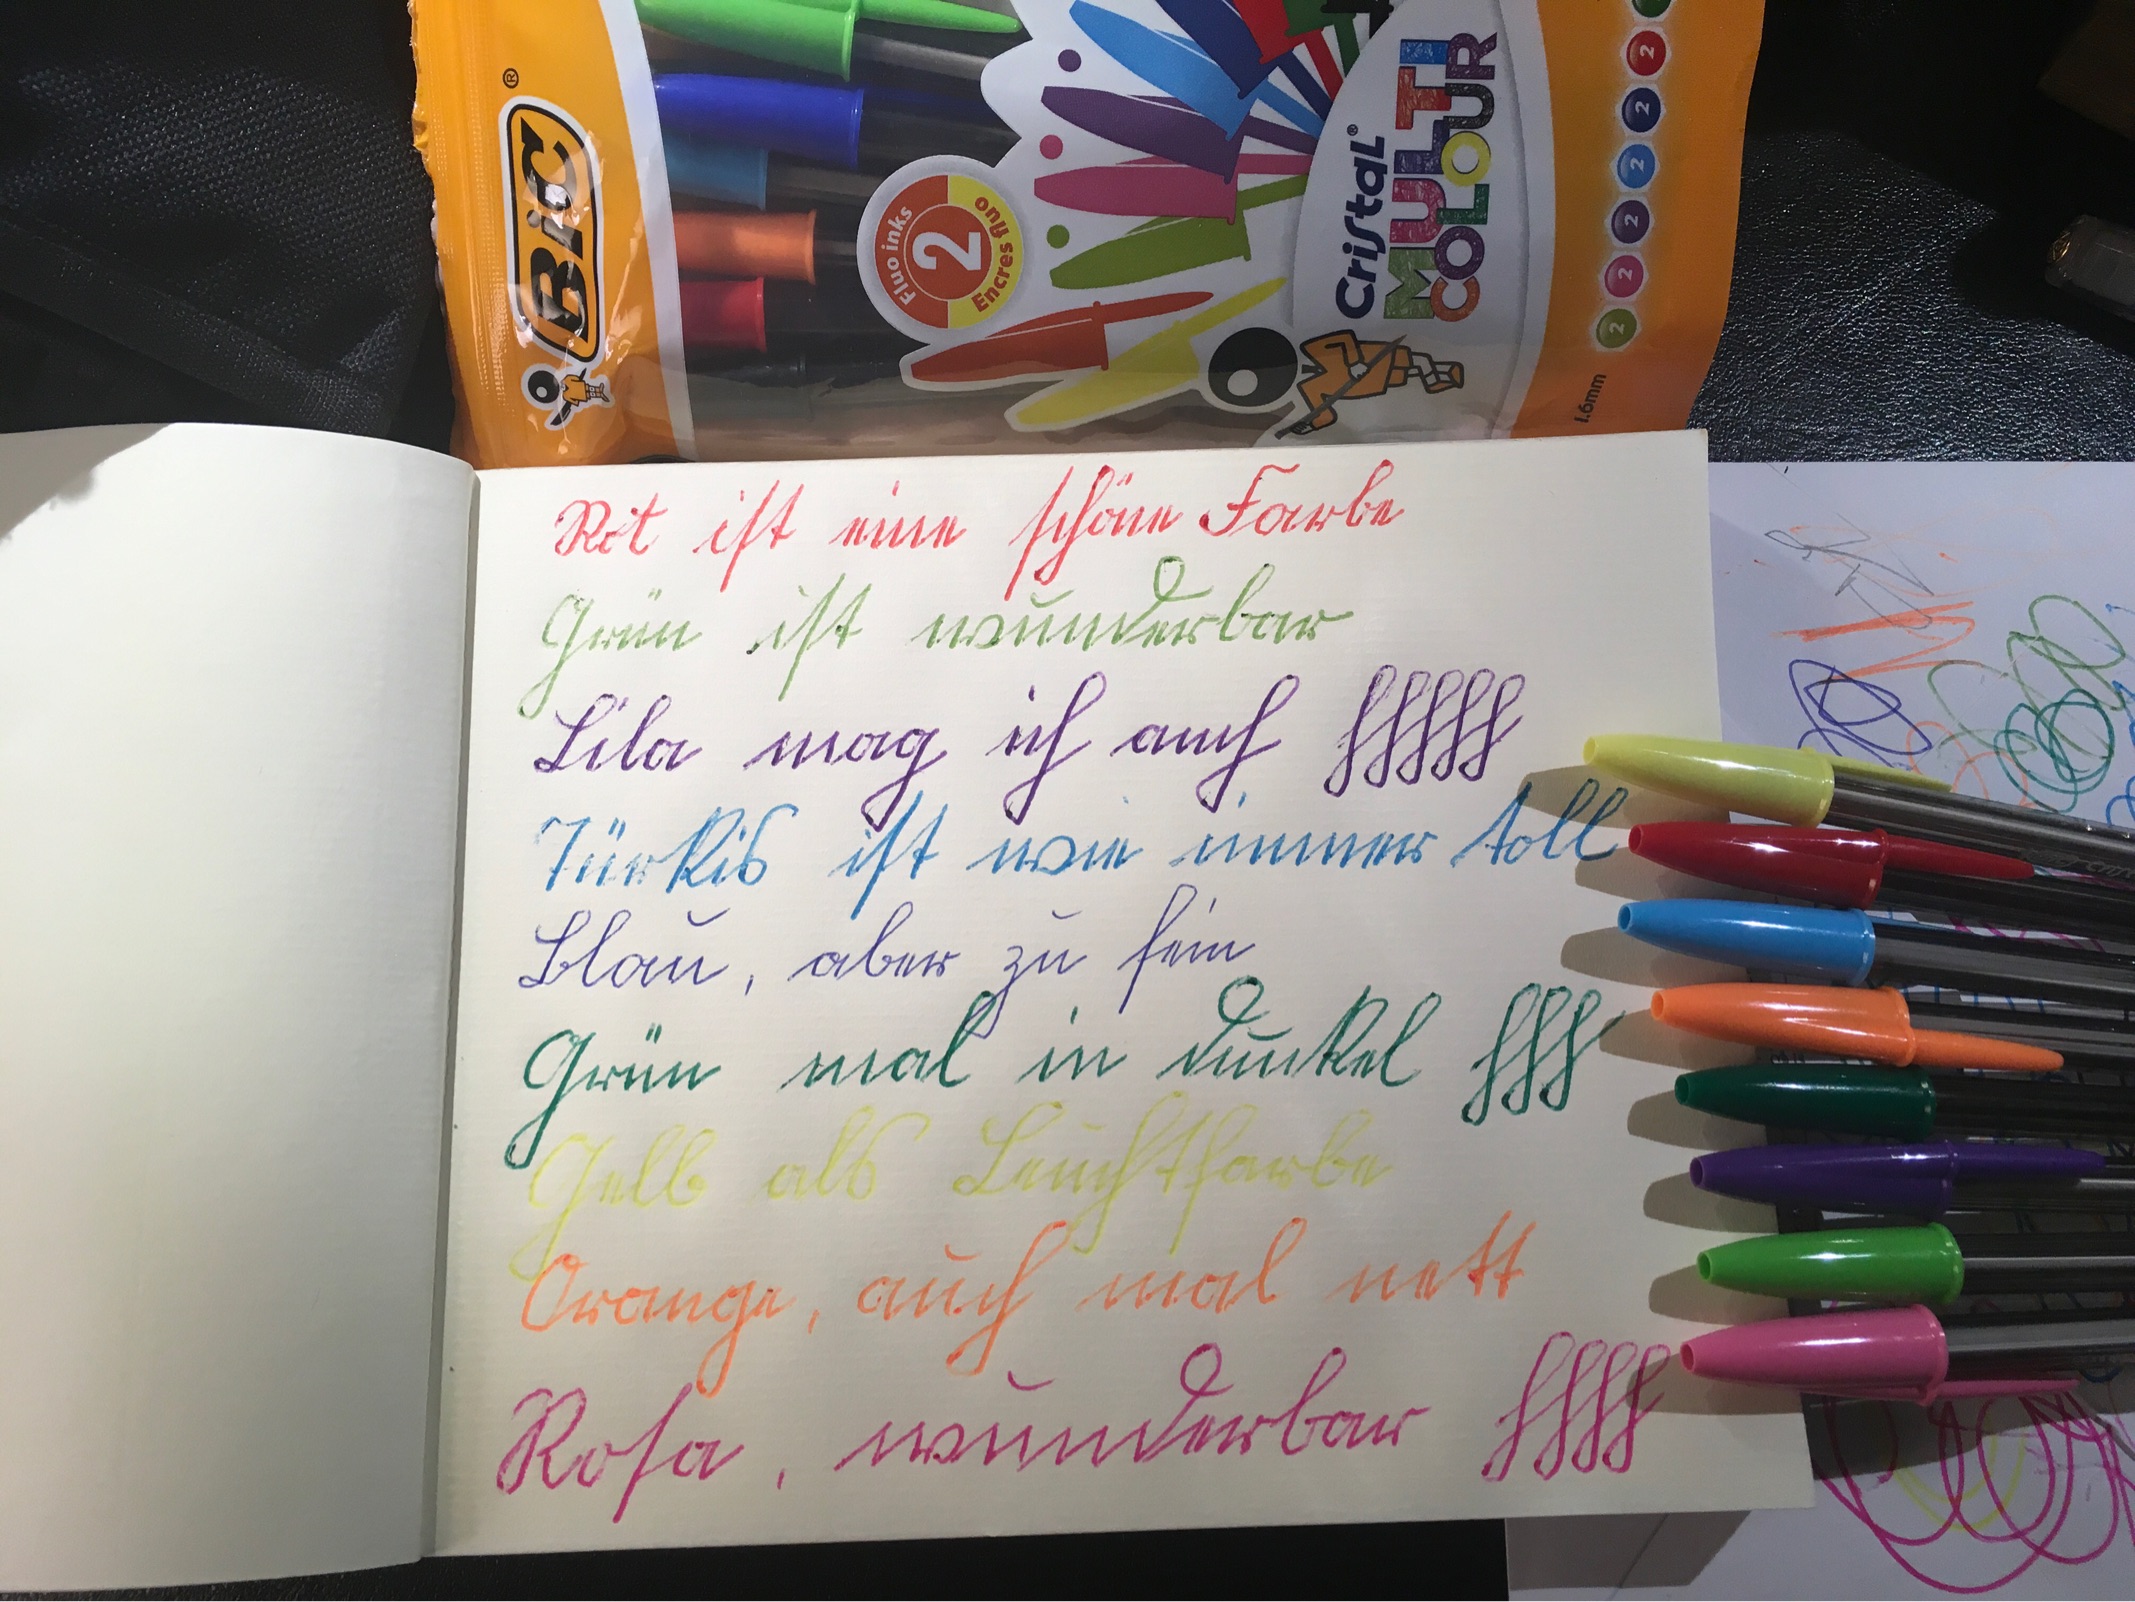 BIC®
Fluo inks
2
Encres fluo
Cristal®
MULTI
COLOUR
2
2
2
2
2
2
1.6mm
Rot ist eine schöne Farbe
Grün ist wunderbar
Lila mag ich auch
Türkis ist wie immer toll
Blau, aber zu fein
Grün mal in dunkel
Gelb als Leuchtfarbe
Orange, auch mal nett
Rosa, wunderbar